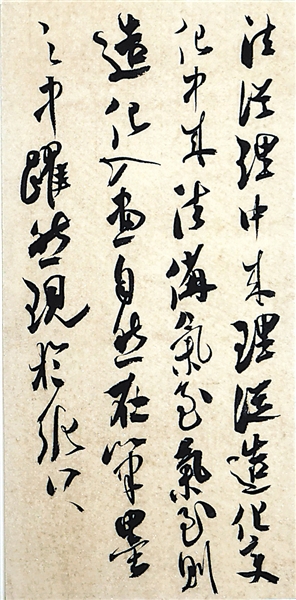 法從理中來理從造化變
化中來法備氣至氣至則
造化入畫自然在筆墨
之中躍然現於紙上